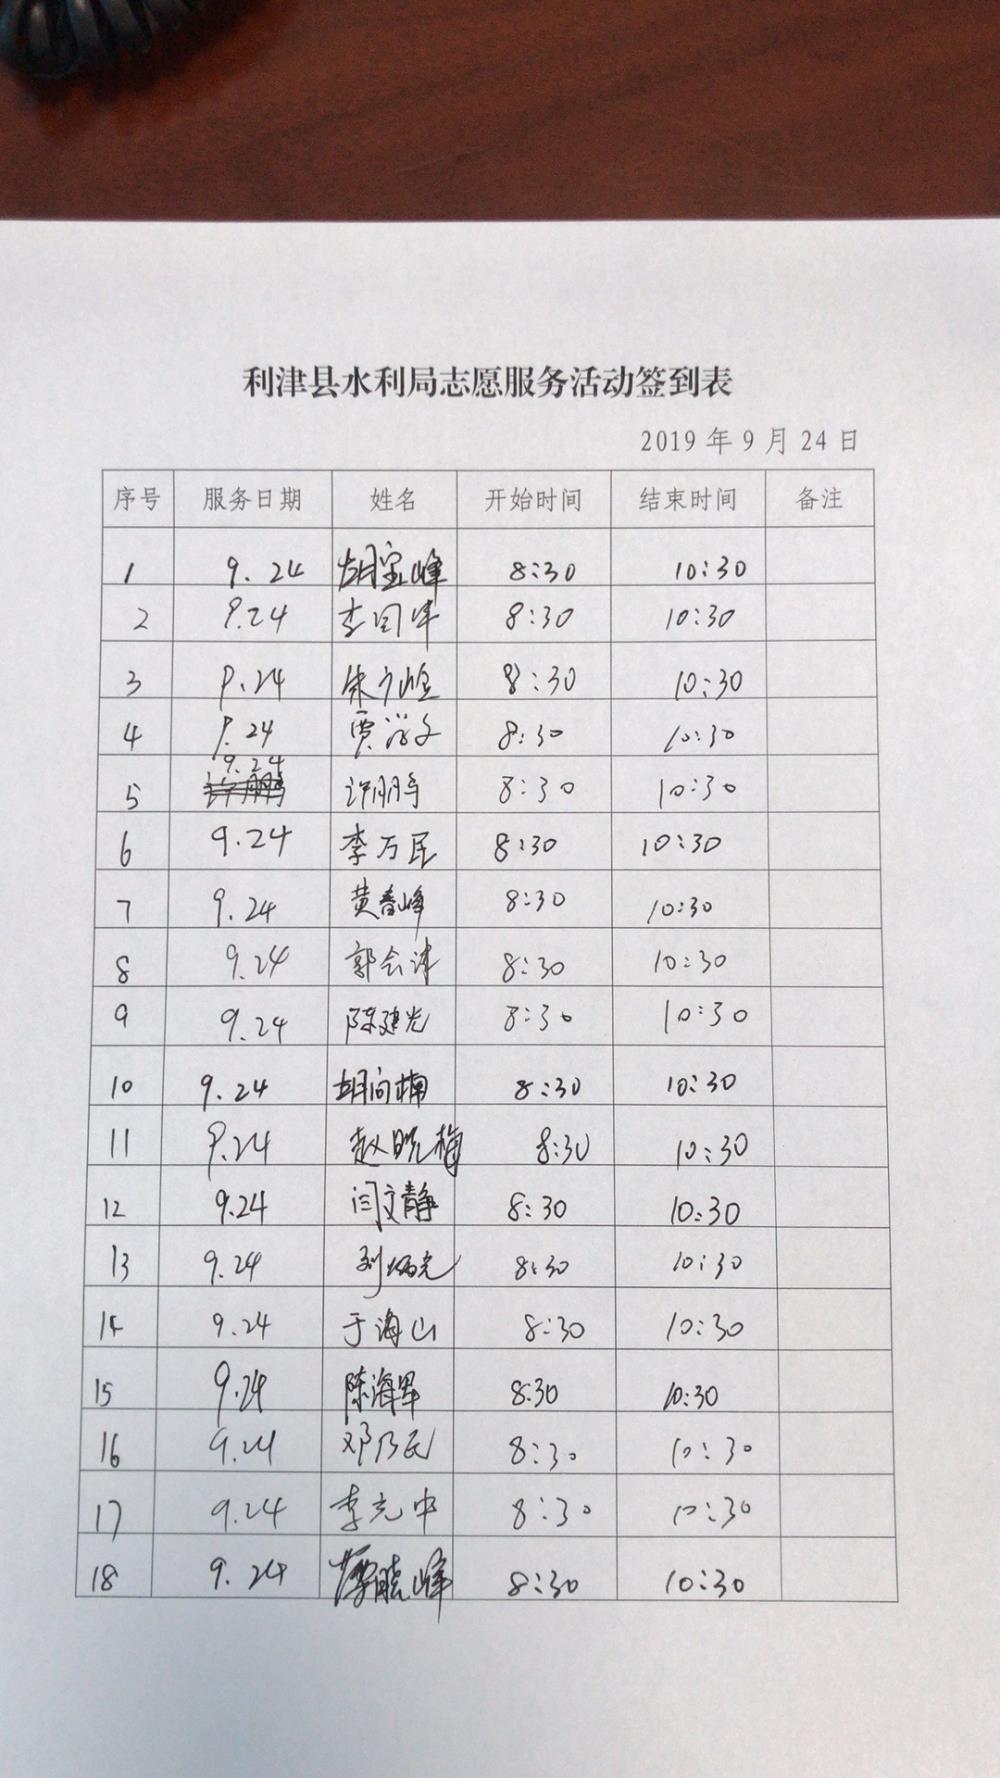 利津县水利局志愿服务活动签到表
2019 年 9 月 24 日
序号 服务日期 姓名 开始时间 结束时间 备注
1 9.24 胡宝峰 8:30 10:30
2 9.24 8:30 10:30
3 9.24 8:30 10:30
4 9.24 8:30 10:30
5 9.24 许鹏 8:30 10:30
6 9.24 李万民 8:30 10:30
7 9.24 黄春峰 8:30 10:30
8 9.24 郭会津 8:30 10:30
9 9.24 陈建光 8:30 10:30
10 9.24 胡向楠 8:30 10:30
11 9.24 赵晓梅 8:30 10:30
12 9.24 闫文静 8:30 10:30
13 9.24 刘炳亮 8:30 10:30
14 9.24 于海山 8:30 10:30
15 9.24 陈海军 8:30 10:30
16 9.24 邓乃民 8:30 10:30
17 9.24 李克中 8:30 10:30
18 9.24 8:30 10:30